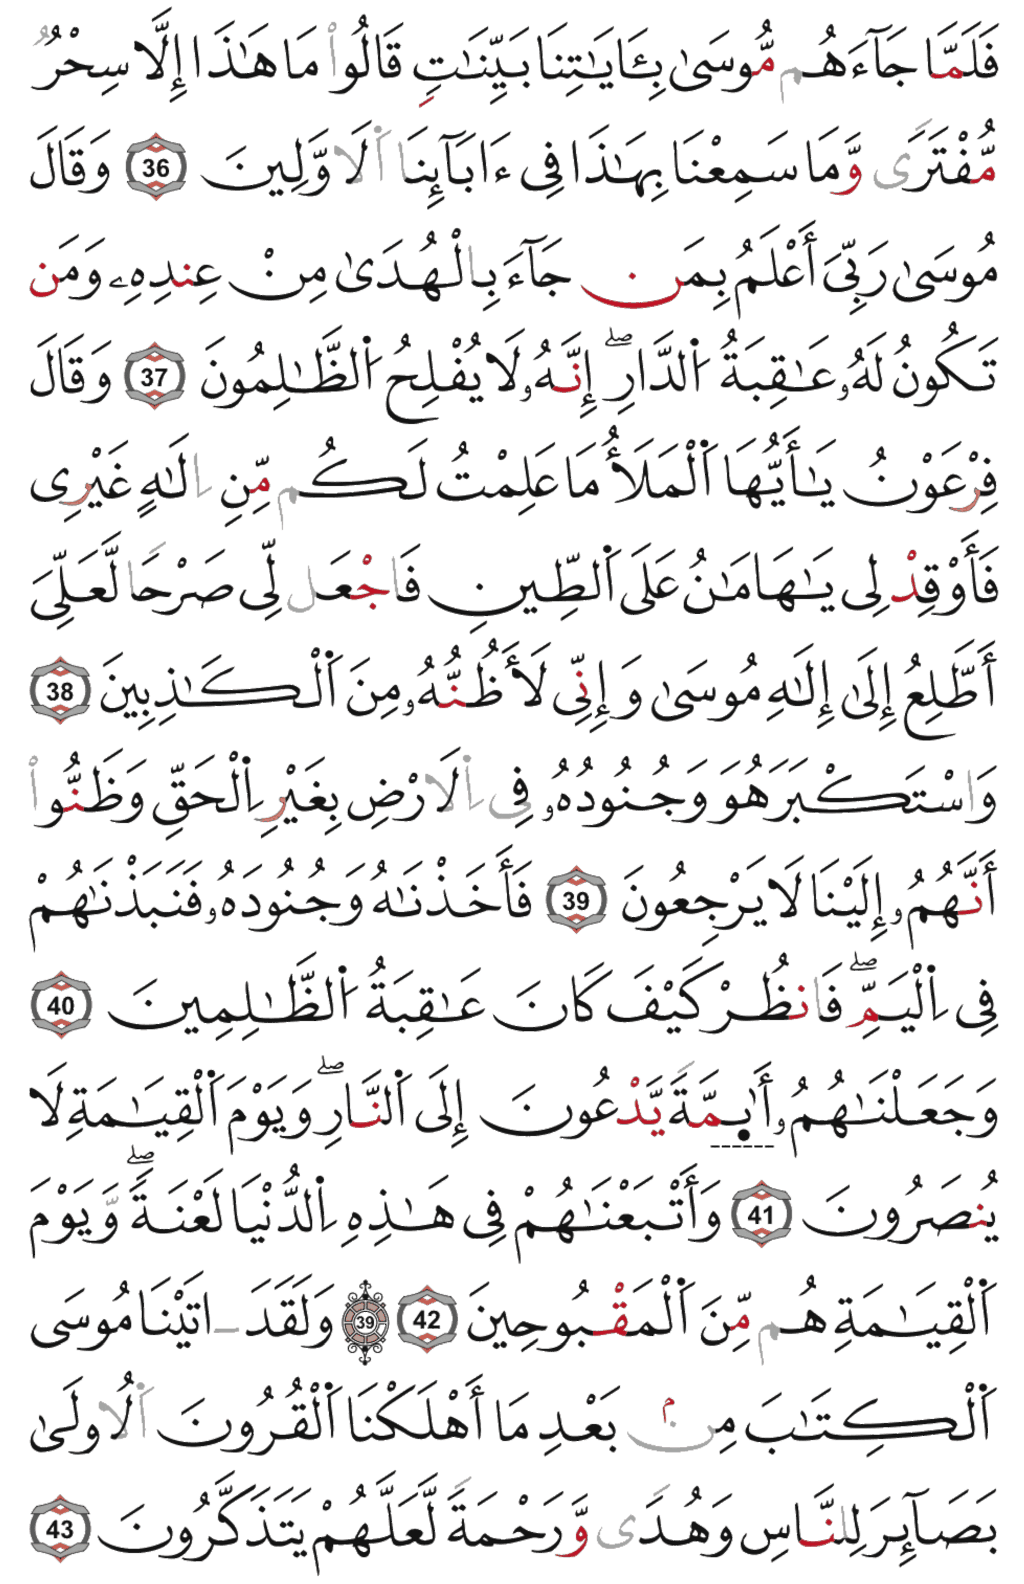 فَلَمَّا جَآءَهُم مُّوسَىٰ بِـَٔايَٰتِنَا بَيِّنَٰتٖ قَالُواْ مَا هَٰذَا إِلَّا سِحْرٞ
مُّفْتَرٗى وَمَا سَمِعْنَا بِهَٰذَا فِى ءَابَآئِنَا اَلَاوَّلِينَ 36 وَقَالَ
مُوسَىٰ رَبِّىَ أَعْلَمُ بِمَن جَآءَ بِالْهُدَىٰ مِنْ عِندِهِۦ وَمَن
تَكُونُ لَهُۥ عَٰقِبَةُ اُلدَّارِۖ إِنَّهُۥ لَا يُفْلِحُ اُلظَّٰلِمُونَ 37 وَقَالَ
فِرْعَوْنُ يَٰأَيُّهَا اَلْمَلَأُ مَا عَلِمْتُ لَكُم مِّنِ اِلَٰهٍ غَيْرِى
فَأَوْقِدْ لِى يَٰهَامَٰنُ عَلَى اَلطِّينِ فَاجْعَل لِّى صَرْحٗا لَّعَلِّىَ
أَطَّلِعُ إِلَىٰ إِلَٰهِ مُوسَىٰ وَإِنِّى لَأَظُنُّهُۥ مِنَ اَلْكَٰذِبِينَ 38
وَاسْتَكْبَرَ هُوَ وَجُنُودُهُۥ فِى اِلَارْضِ بِغَيْرِ اِلْحَقِّ وَظَنُّواْ
أَنَّهُمُۥ إِلَيْنَا لَا يَرْجِعُونَ 39 فَأَخَذْنَٰهُ وَجُنُودَهُۥ فَنَبَذْنَٰهُمْ
فِى اِلْيَمِّۖ فَانظُرْ كَيْفَ كَانَ عَٰقِبَةُ اُلظَّٰلِمِينَ 40
وَجَعَلْنَٰهُمُۥ أَئِمَّةٗ يَدْعُونَ إِلَى اَلنَّارِۖ وَيَوْمَ اَلْقِيَٰمَةِ لَا
يُنصَرُونَ 41 وَأَتْبَعْنَٰهُمْ فِى هَٰذِهِ اِلدُّنْيَا لَعْنَةٗۖ وَيَوْمَ
اَلْقِيَٰمَةِ هُم مِّنَ اَلْمَقْبُوحِينَ 42 39 وَلَقَدَ اتَيْنَا مُوسَى
اَلْكِتَٰبَ مِنۢ بَعْدِ مَا أَهْلَكْنَا اَلْقُرُونَ اَلُاولَىٰ
بَصَآئِرَ لِلنَّاسِ وَهُدٗى وَرَحْمَةٗ لَّعَلَّهُمْ يَتَذَكَّرُونَ 43